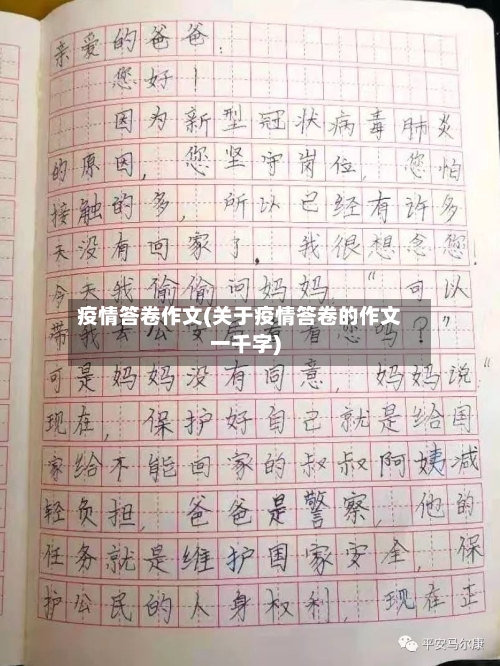 亲爱的爸爸:
您好!
因为新型冠状病毒肺炎
的原因,您坚守岗位,您怕
接触的多,所以已经有许多
天没有回家了,我很想念您!
今天我偷偷问妈妈“可以
疫情答卷作文(关于疫情答卷的作文
一千字)
带我去公安
吗?”
可是妈妈没有同意,妈妈说
现在,保护好自己就是给国
家给不能回家的叔叔阿姨减
轻负担,爸爸是警察,他的
任务就是维护国家安全,保
护公民的人身权利,现在正
平安马尔康